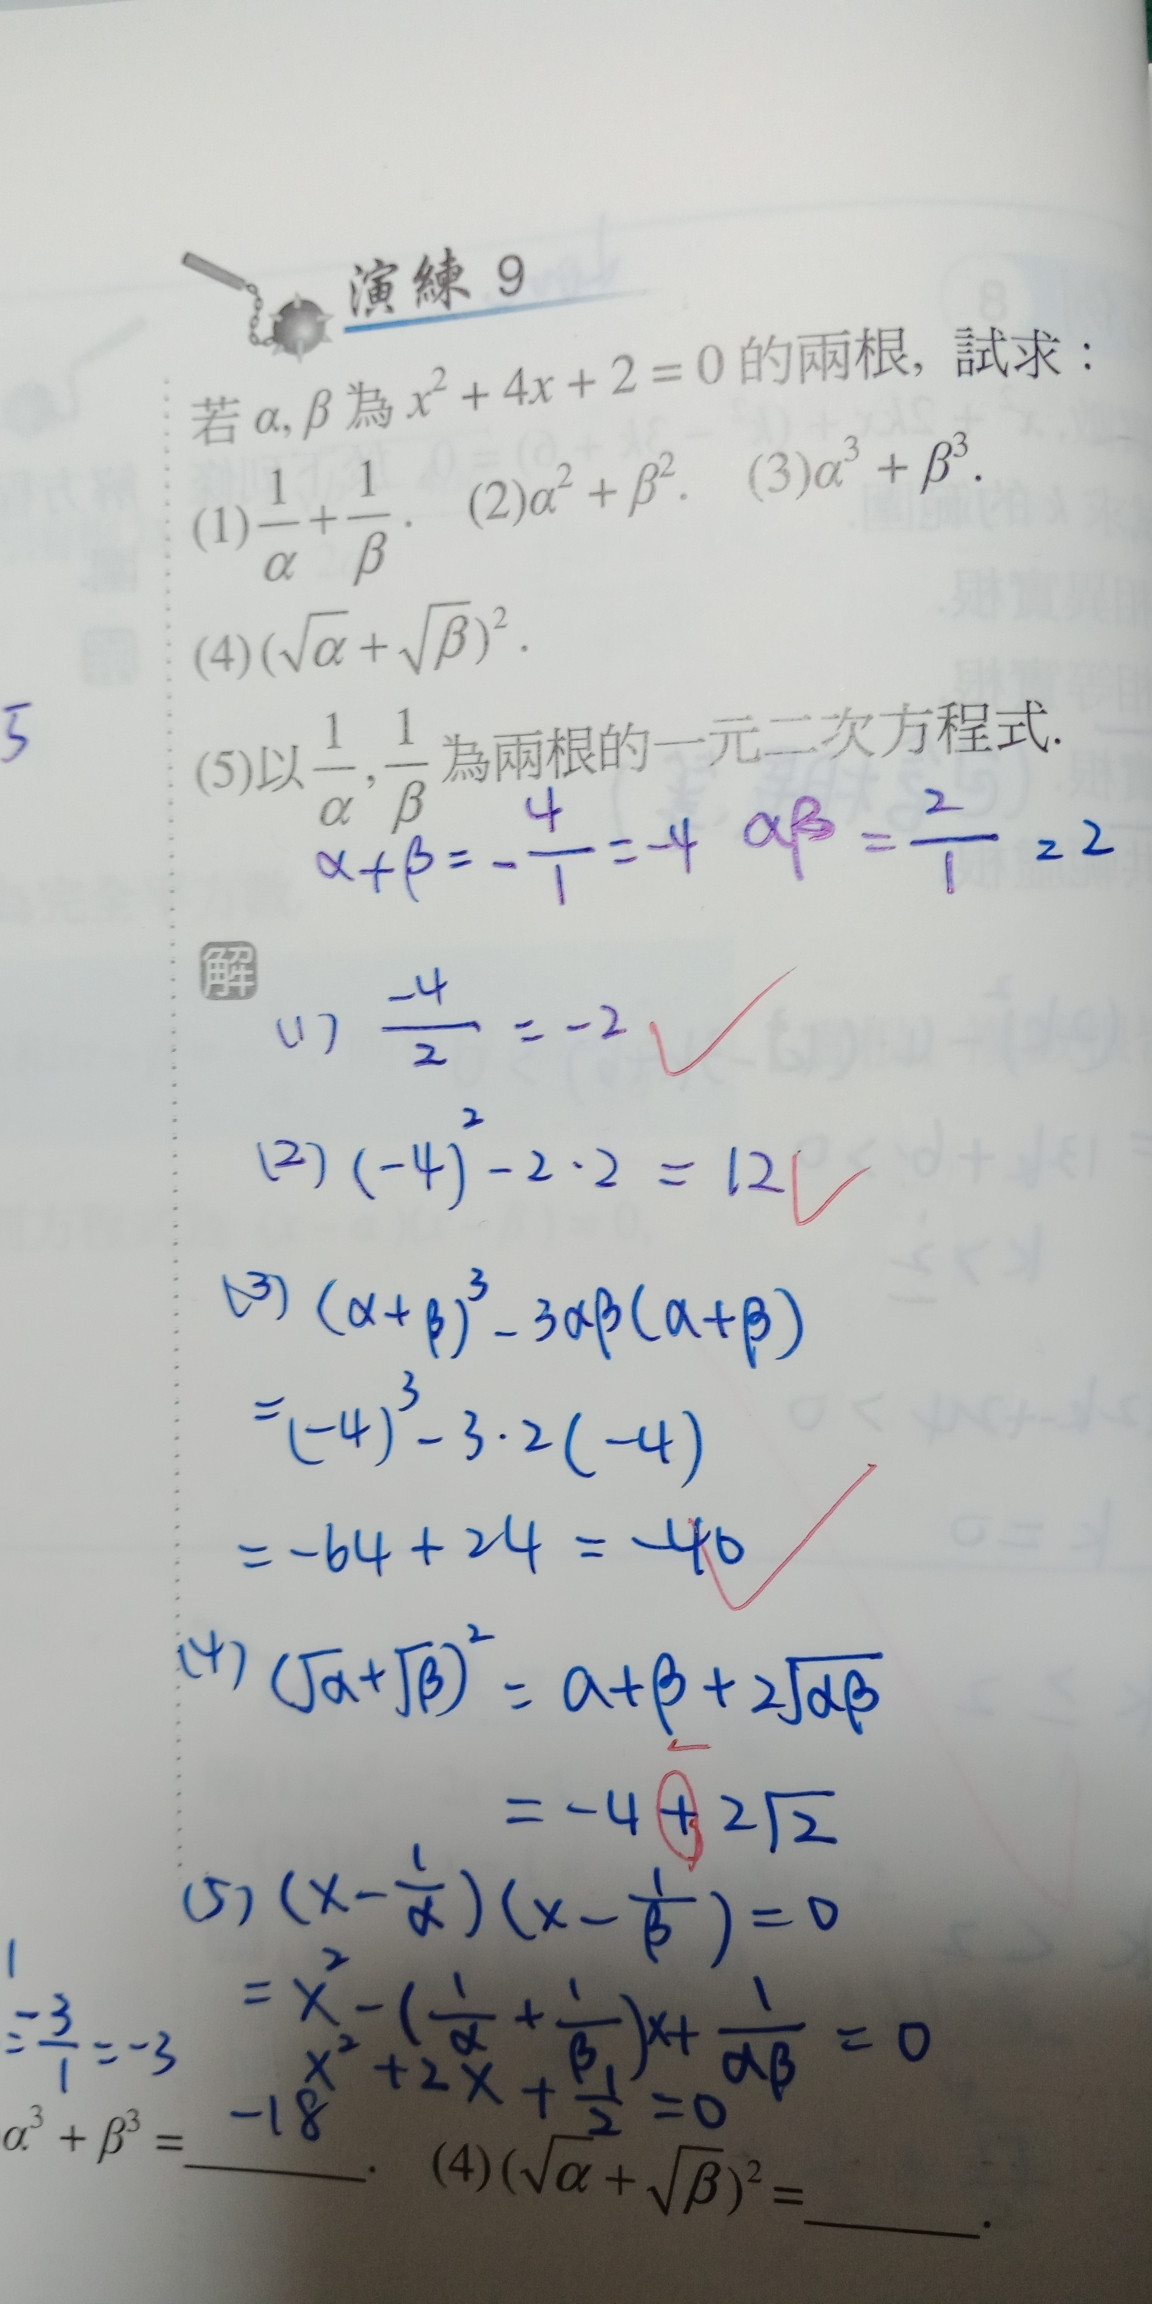 演練 9
若 α, β 為 x² + 4x + 2 = 0 的兩根, 試求 :
(1) 1/α + 1/β . (2) α² + β². (3) α³ + β³.
(4) (√α + √β)² .
5
(5) 以 1/α , 1/β 為兩根的一元二次方程式.
α + β = - 4/1 = -4 αβ = 2/1 = 2
解
(1) -4/2 = -2
(2) (-4)² - 2 · 2 = 12
(3) (α + β)³ - 3αβ(α + β)
= (-4)³ - 3 · 2 (-4)
= -64 + 24 = -40
(4) (√α + √β)² = α + β + 2√αβ
= -4 + 2√2
(5) (x - 1/α) (x - 1/β) = 0
= x² - (1/α + 1/β)x + 1/αβ = 0
= -3/1 = -3
x² + 2x + 1/2 = 0
α³ + β³ = -18 . (4) (√α + √β)² = ______ .